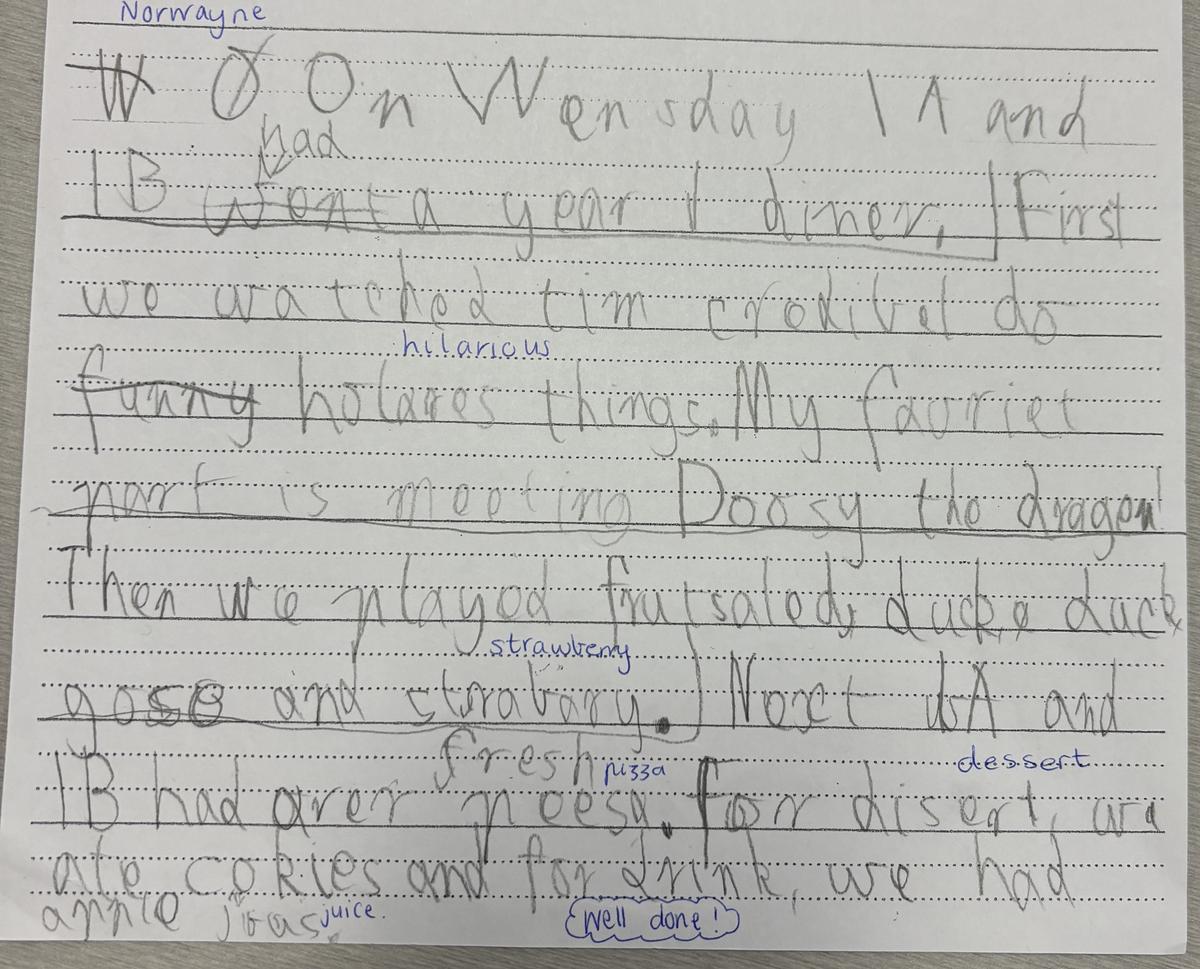 Norwayne
W O On Wensday 1A and
had
1B went a year 1 diner, First
we watched tim crodibel do
hilarious
funny holares things. My favriet
part is meeting Doosy the dragon!
Then we played frutsaled, duck, duck,
strawberry
gose and strabary. Next 1A and
fresh pizza dessert
1B had arer peesa. For disert, we
ate cokies and for drink, we had
apple juas. juice.
Well done!